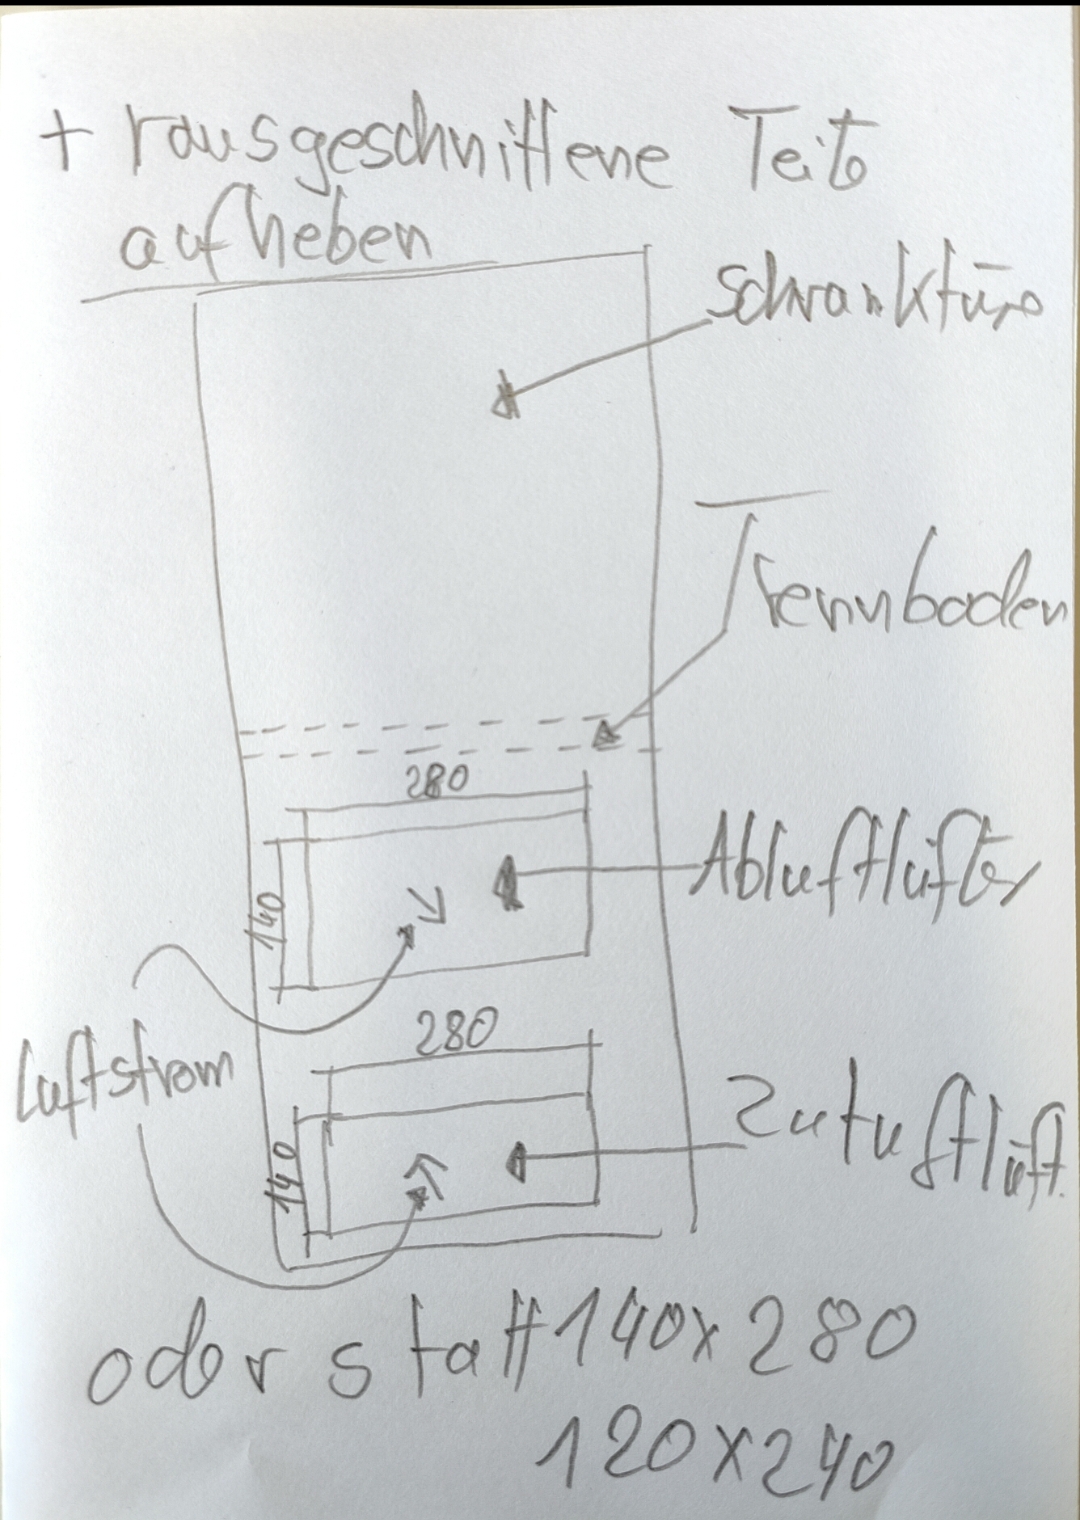 + rausgeschnittene Teile
aufheben
Schranktüre
Trennboden
280
Abluftlüfter
140
280
Luftstrom
Zuluftlüft.
140
oder statt 140x280
120x240